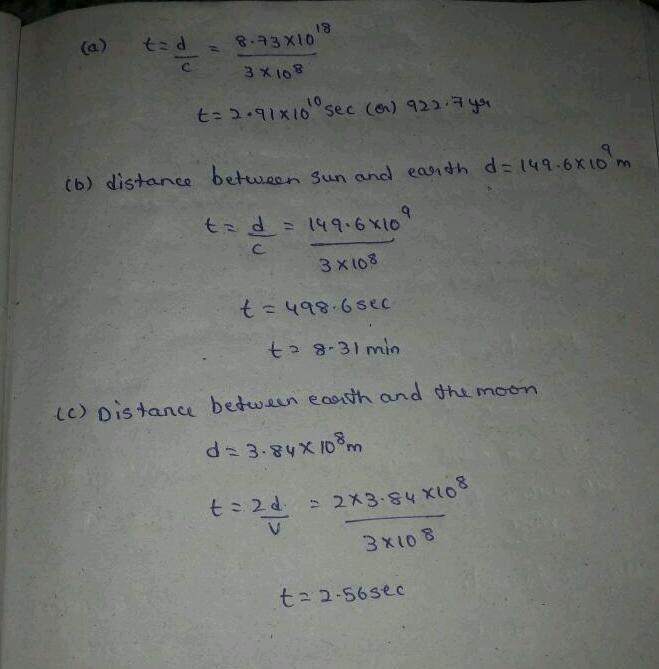 (a) t = d/c = 8.73×10¹⁸/3×10⁸
t = 2.91×10¹⁰ sec (or) 922.7 yr
(b) distance between sun and earth d = 149.6×10⁹ m
t = d/c = 149.6×10⁹/3×10⁸
t = 498.6 sec
t = 8.31 min
(c) Distance between earth and the moon
d = 3.84×10⁸ m
t = 2d/v = 2×3.84×10⁸/3×10⁸
t = 2.56 sec